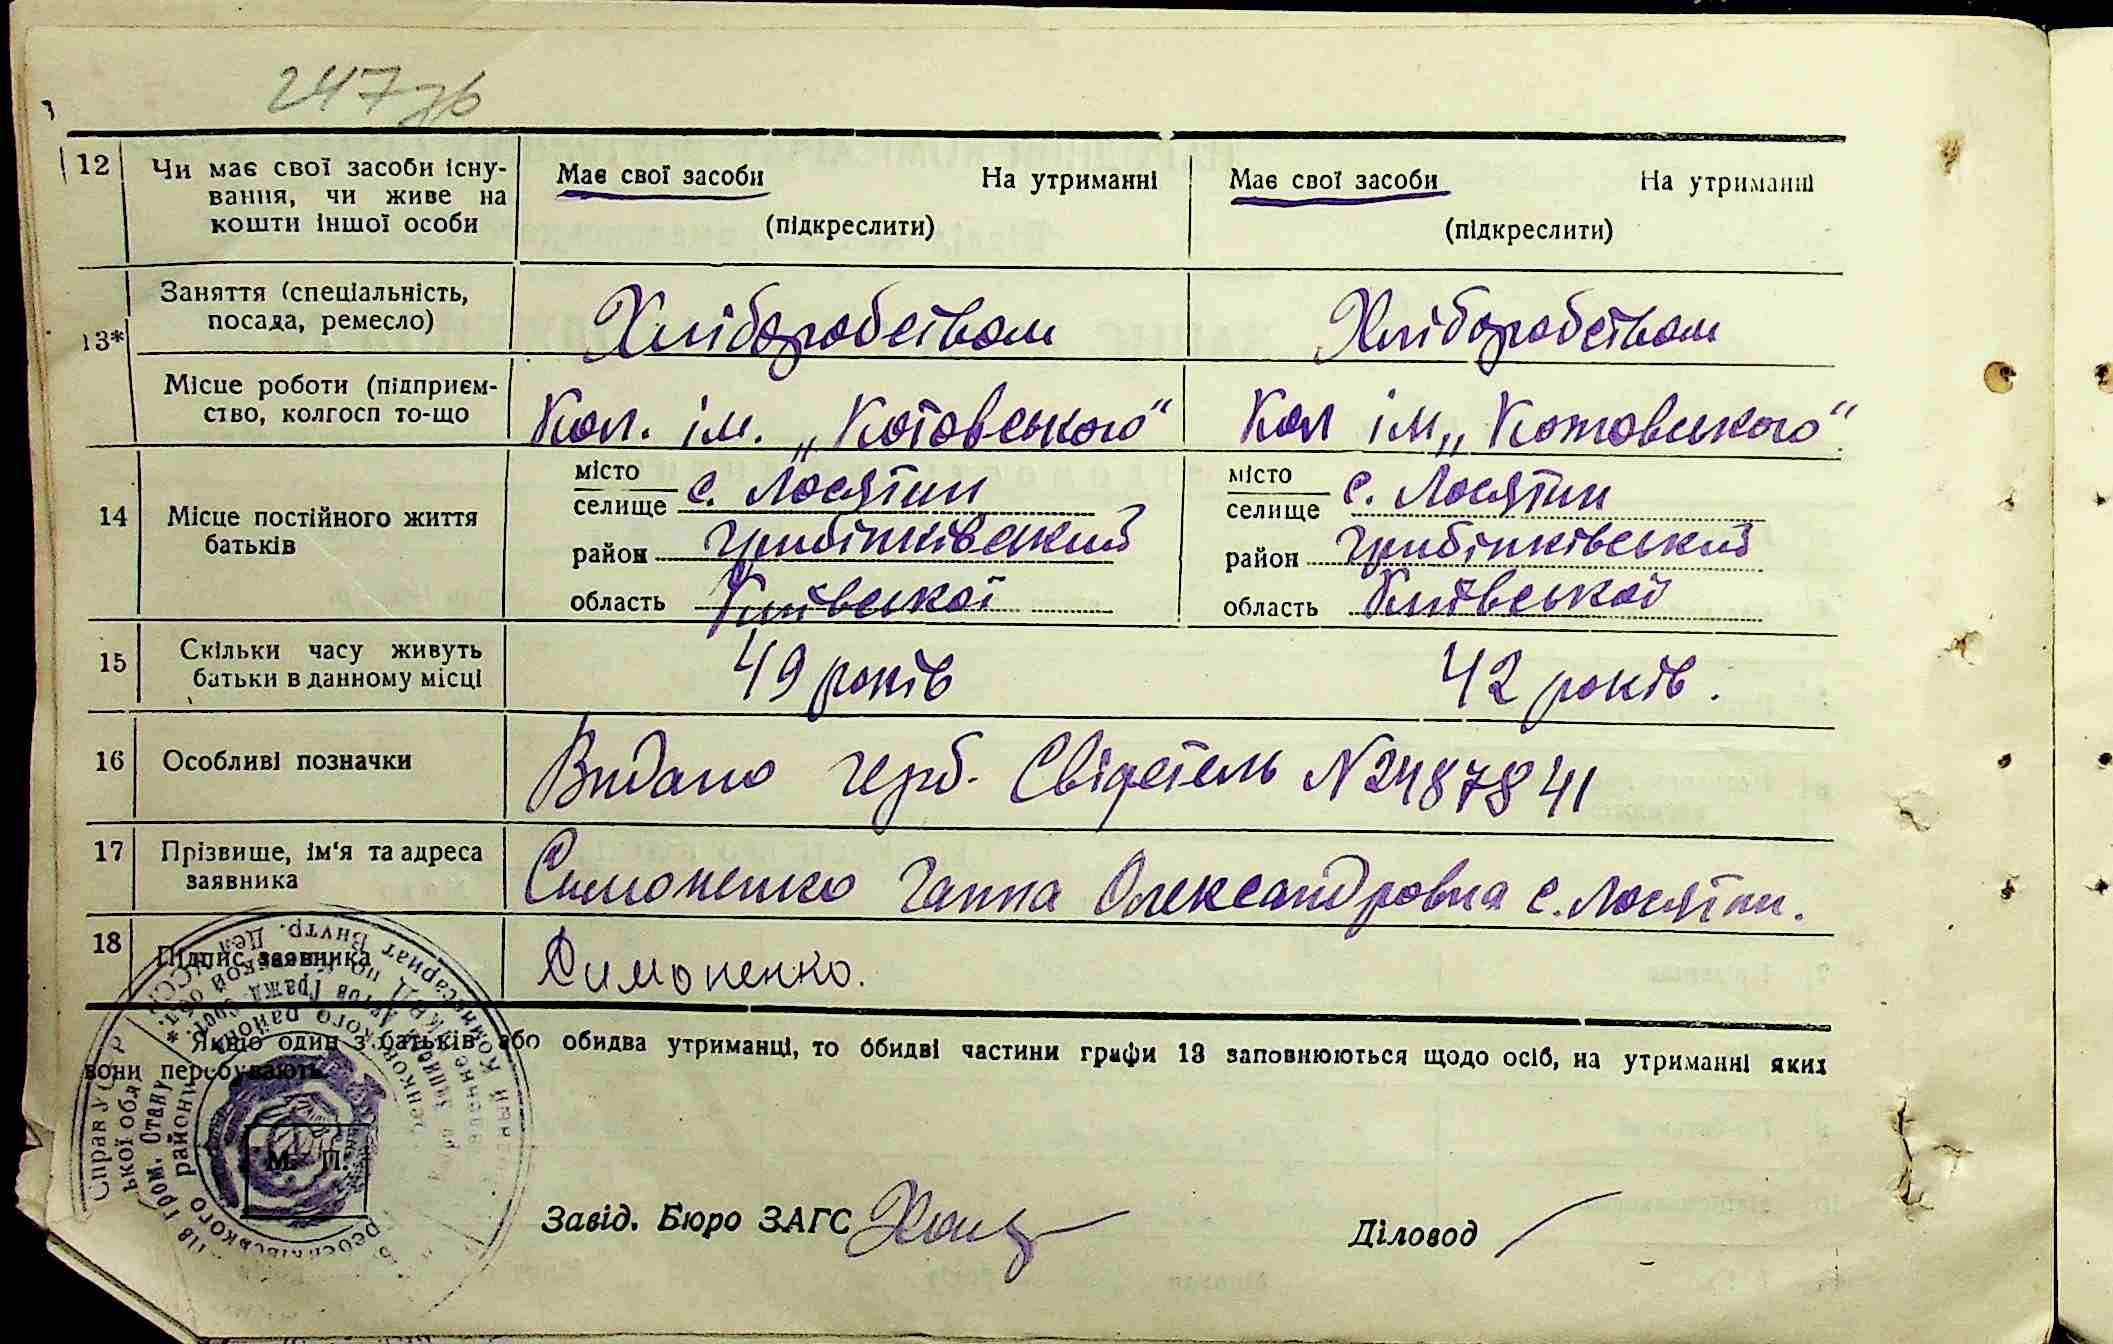 247 зв
12 Чи має свої засоби існу-
вання, чи живе на
кошти іншої особи
Має свої засоби На утриманні
(підкреслити)
Має свої засоби На утриманні
(підкреслити)
13* Заняття (спеціальність,
посада, ремесло)
Хліборобством
Хліборобством
Місце роботи (підприєм-
ство, колгосп то-що
Кол. ім. „Котовського"
Кол ім „Котовського"
14 Місце постійного життя
батьків
місто
селище с. Лосятин
район Гребінківський
область Київської
місто
селище с. Лосятин
район Гребінківський
область Київської
15 Скільки часу живуть
батьки в данному місці
49 років
42 років.
16 Особливі позначки
Видано герб. Свідетель N2487841
17 Прізвище, ім'я та адреса
заявника
Симоненко Ганна Олександровна с. Лосятин.
18 Підпис заявника
Симоненко.
* Якщо один з батьків або обидва утриманці, то обидві частини графи 13 заповнюються щодо осіб, на утриманні яких
вони перебувають
М. П.
Завід. Бюро ЗАГС
Діловод